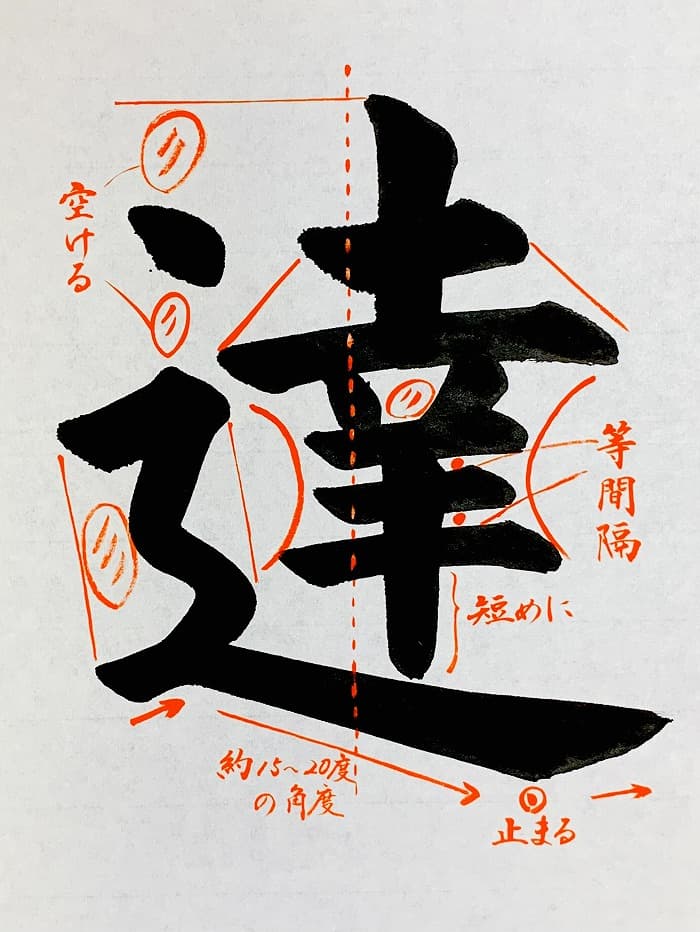 達
空ける
等間隔
短めに
約15〜20度
の角度
止まる